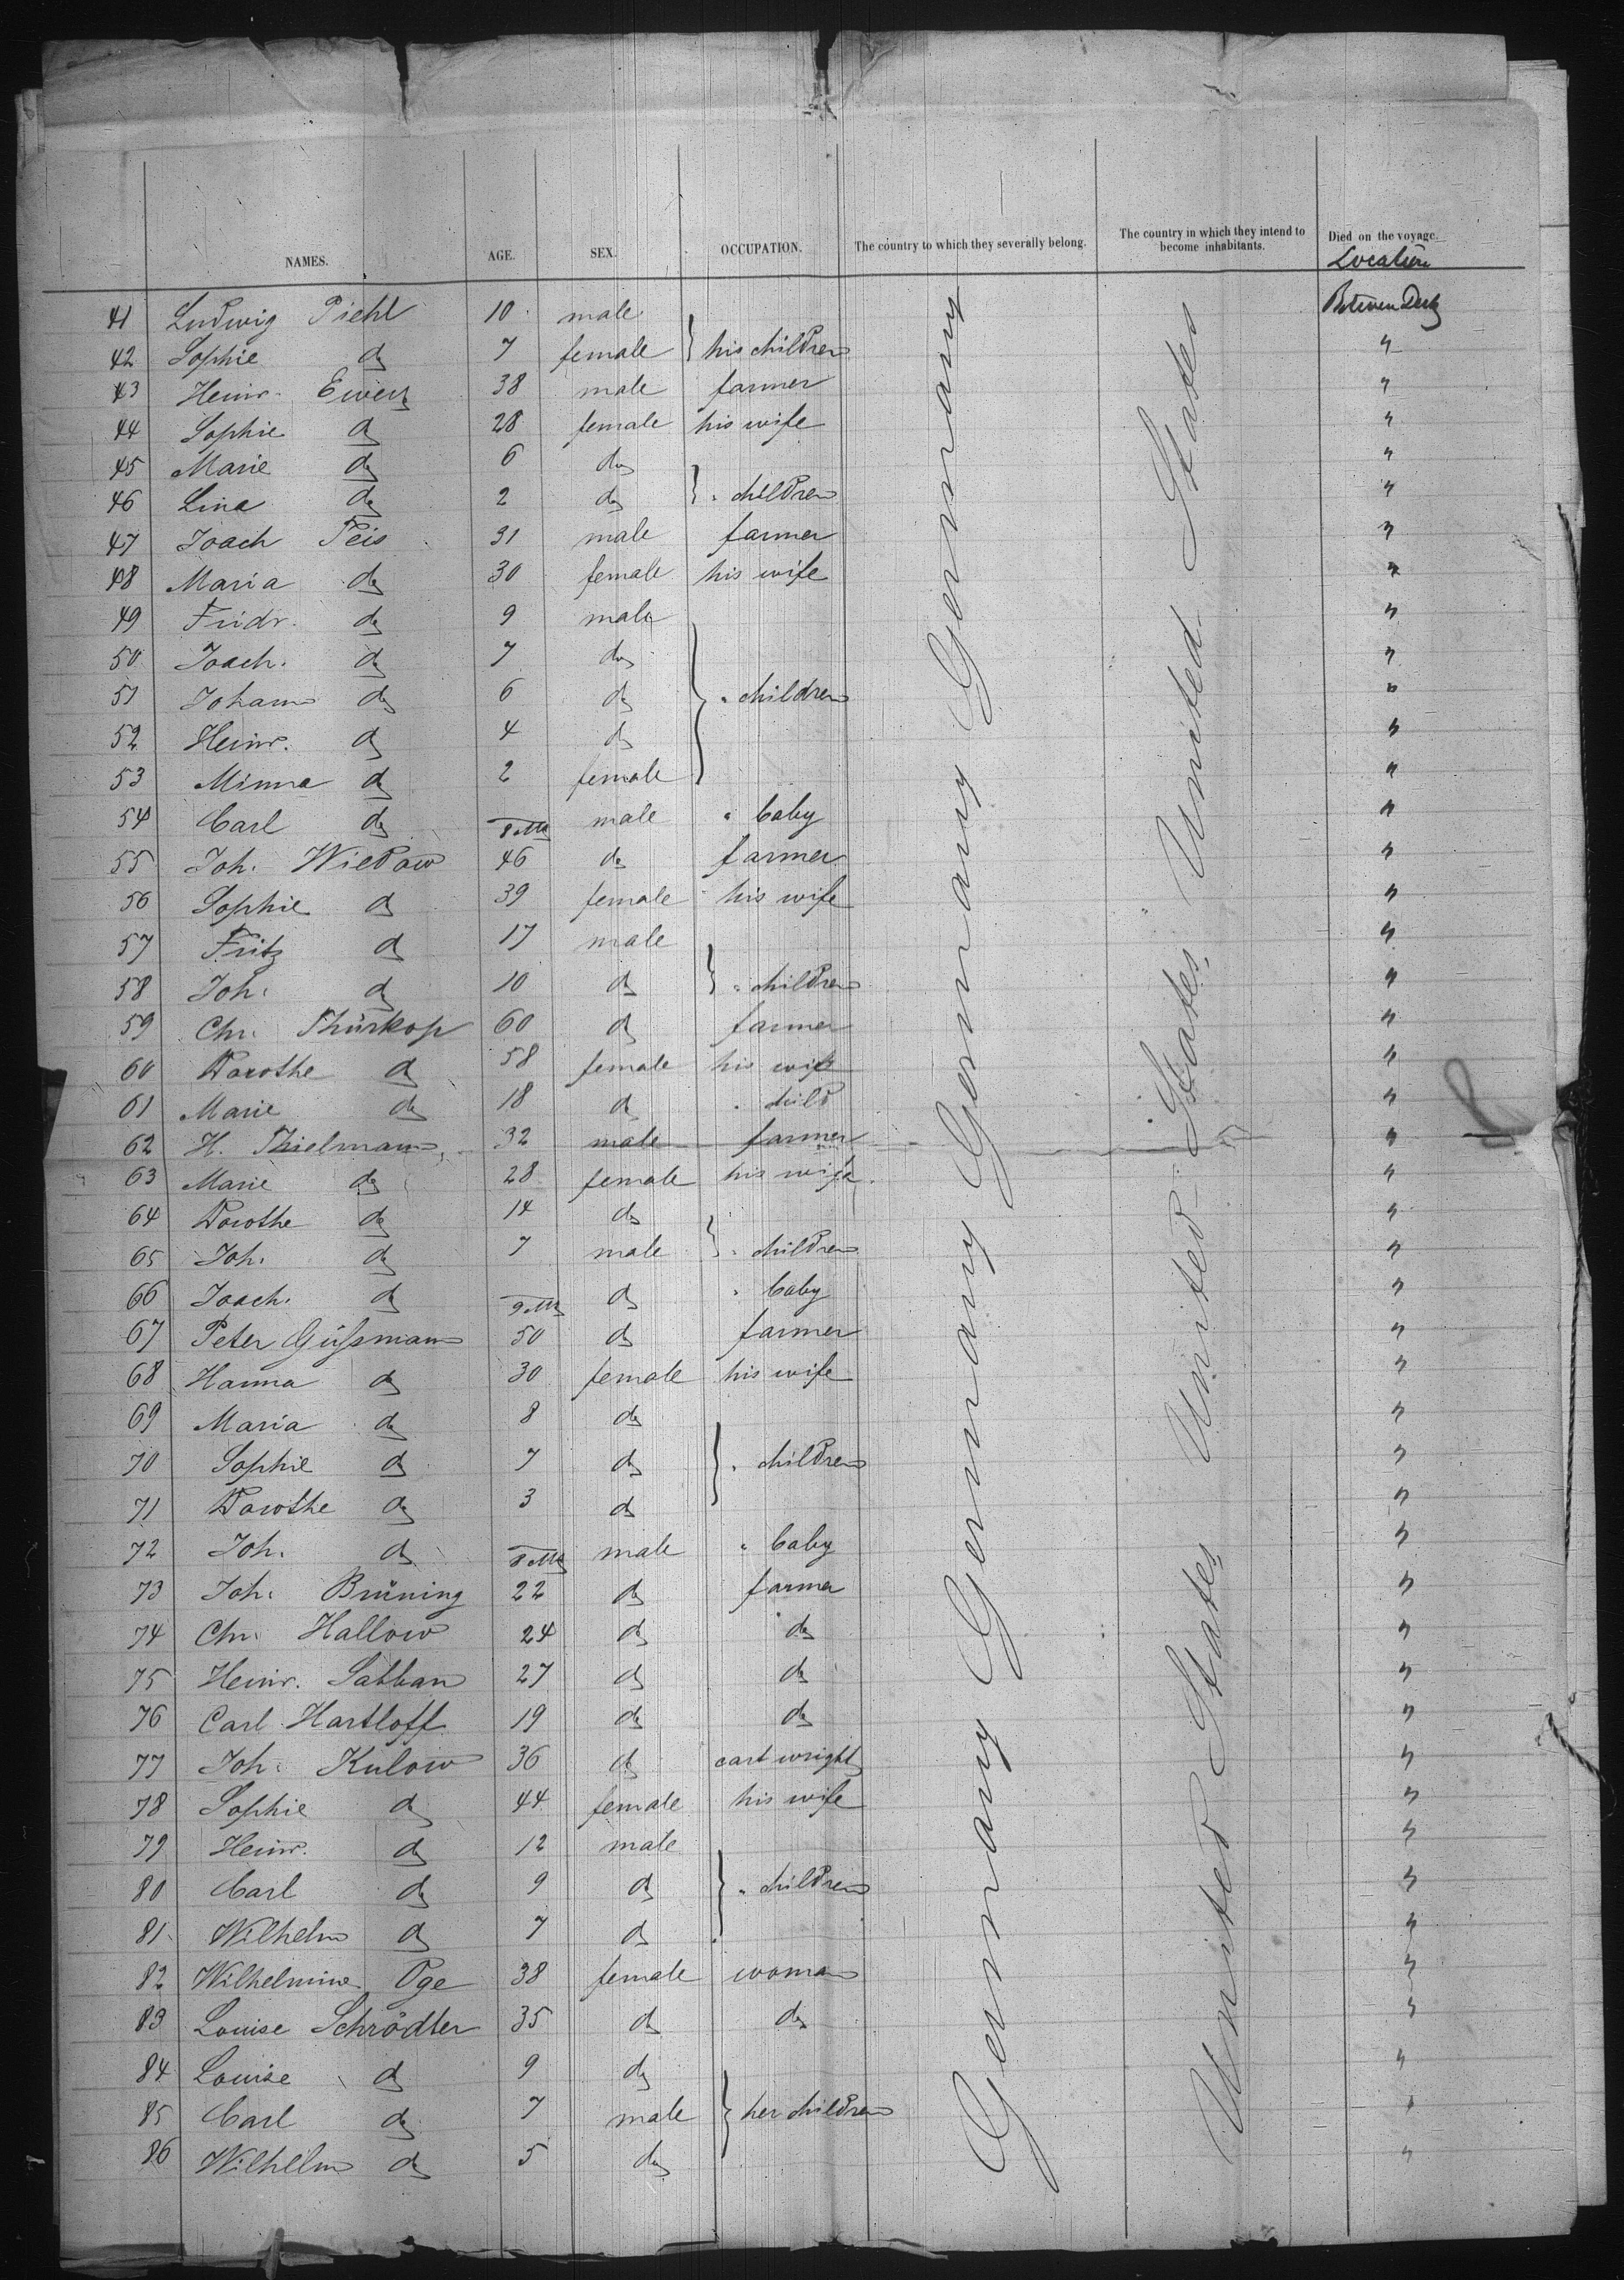 NAMES. AGE. SEX. OCCUPATION. The country to which they severally belong. The country in which they intend to become inhabitants. Died on the voyage.
Location
41 Ludwig Piehl 10 male Between Deck
42 Sophie do 7 female } his children "
43 Heinr. Ewers 38 male farmer "
44 Sophie do 28 female his wife "
45 Marie do 6 do "
46 Line do 2 do } " children "
47 Joach Peis 31 male farmer "
48 Maria do 30 female his wife "
49 Fridr. do 9 male "
50 Joach. do 7 do "
51 Johann do 6 do } " children "
52 Heinr. do 4 do "
53 Minna do 2 female "
54 Carl do 8 Ms male " baby "
55 Joh. Wiedow 46 do farmer "
56 Sophie do 39 female his wife "
57 Fritz do 17 male "
58 Joh. do 10 do } " children "
59 Chr. Thürkop 60 do farmer "
60 Dorothe do 58 female his wife "
61 Marie do 18 do " child "
62 H. Thielmann 32 male farmer "
63 Marie do 28 female his wife "
64 Dorothe do 14 do "
65 Joh. do 7 male } " children "
66 Joach. do 9 Ms do " baby "
67 Peter Güssmann 50 do farmer "
68 Hanna do 30 female his wife "
69 Maria do 8 do "
70 Sophie do 7 do } " children "
71 Dorothe do 3 do "
72 Joh. do 8 Ms male " baby "
73 Joh. Brüning 22 do farmer "
74 Chr. Hallow 24 do do "
75 Heinr. Sathan 27 do do "
76 Carl Hartloff 19 do do "
77 Joh. Kulow 36 do cart wright "
78 Sophie do 44 female his wife "
79 Heinr. do 12 male "
80 Carl do 9 do } " children "
81 Wilhelm do 7 do "
82 Wilhelmine Oge 38 female woman "
83 Louise Schrödter 35 do do "
84 Louise do 9 do "
85 Carl do 7 male } her children "
86 Wilhelm do 5 do "
Germany Germany Germany Germany Germany
United States United States United States